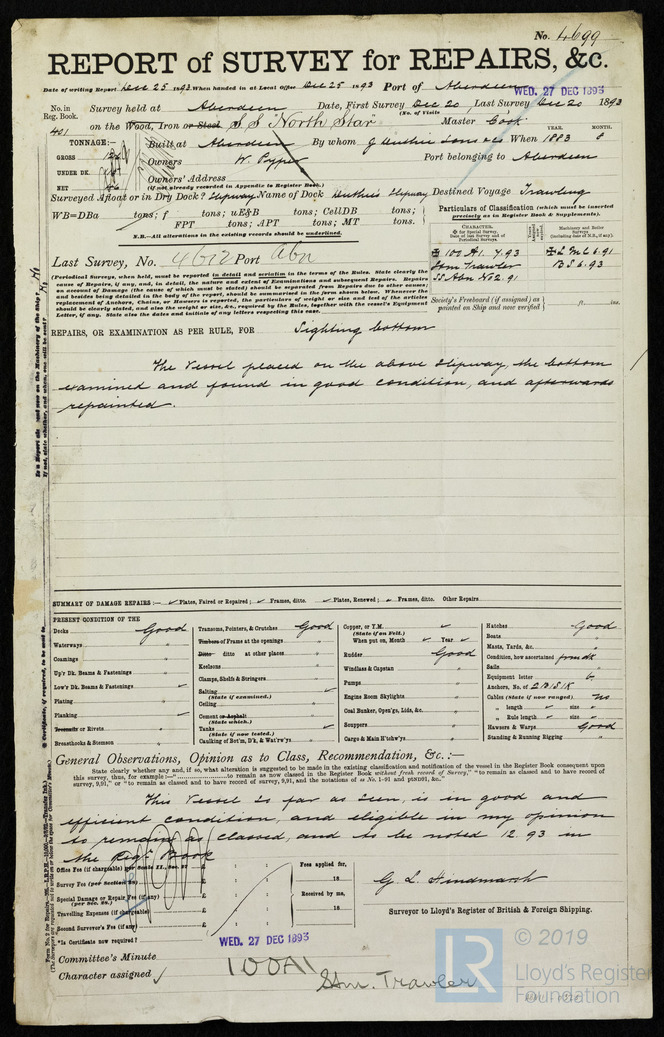 No. 4699
REPORT of SURVEY for REPAIRS, &c.
Date of writing Report Dec 25 1893 When handed in at Local Office Dec 25 1893 Port of Aberdeen
WED. 27 DEC 1893
No. in Reg. Book. Survey held at Aberdeen Date, First Survey Dec 20 Last Survey Dec 20 1893
(No. of Visits
401 on the Wood, Iron or Steel S S "North Star" Master Cook
TONNAGE:— Built at Aberdeen By whom J Duthie Sons & Co When 1883 YEAR. 8 MONTH.
GROSS
Owners W. Pyper Port belonging to Aberdeen
UNDER DK.
Owners' Address
NET
(if not already recorded in Appendix to Register Book.)
Surveyed Afloat or in Dry Dock? Slipway Name of Dock Duthie's Slipway Destined Voyage Trawling
WB=DBa tons; f tons; uE&B tons; CellDB tons;
FPT tons; APT tons; MT tons.
N.B.—All alterations in the existing records should be underlined.
Particulars of Classification (which must be inserted precisely as in Register Book & Supplements).
CHARACTER.
✠ for Special Survey.
Date of last Survey and of Periodical Surveys.
Machinery and Boiler Surveys
✠ 100 A1. 7.93 ✠ L M C 6.91
Stm Trawler B S 6.93
SS Abn No2. 91
Society's Freeboard (if assigned) as painted on Ship and now verified ft. ins.
Last Survey, No. 4612 Port Abn
(Periodical Surveys, when held, must be reported in detail and seriatim in the terms of the Rules. State clearly the
cause of Repairs, if any, and, in detail, the nature and extent of Examinations and subsequent Repairs. Repairs
on account of Damage (the cause of which must be stated) should be separated from Repairs due to other causes;
and besides being detailed in the body of the report, should be summarised in the form shown below. Whenever the
replacement of Anchors, Chains, or Hawsers is reported, the particulars of weight or size and test of the articles
should be clearly stated, and also the weight or size, &c., required by the Rules, together with the vessel's Equipment
Letter, if any. State also the dates and initials of any letters respecting this case.
REPAIRS, OR EXAMINATION AS PER RULE, FOR Sighting bottom
The Vessel placed on the above Slipway, the bottom
examined and found in good condition, and afterwards
repainted.
SUMMARY OF DAMAGE REPAIRS :— Plates, Faired or Repaired; Frames, ditto. Plates, Renewed; Frames, ditto. Other Repairs
PRESENT CONDITION OF THE
Decks Good
Waterways "
Coamings "
Up'r Dk. Beams & Fastenings "
Low'r Dk. Beams & Fastenings
Plating "
Planking
Treenails or Rivets "
Breasthooks & Stemson "
Transoms, Pointers, & Crutches Good
Timbers of Frame at the openings "
Ditto ditto at other places "
Keelsons "
Clamps, Shelfs & Stringers "
Salting
(State if examined.)
Ceiling "
Cement or Asphalt "
(State which.)
Tanks
(State if now tested.)
Caulking of Bot'm, D'k, & Wat'rw'ys "
Copper, or Y.M.
(State if on Felt.)
When put on, Month Year
Rudder Good
Windlass & Capstan "
Pumps "
Engine Room Skylights "
Coal Bunker, Open'gs, Lids, &c. "
Scuppers "
Cargo & Main H'tchw'ys "
Hatches Good
Boats "
Masts, Yards, &c. "
Condition, how ascertained from dk
Sails "
Equipment letter b
Anchors, No. of 2 B 1 S 1 K
Cables (State if now ranged). no
" length size
" Rule length size
Hawsers & Warps Good
Standing & Running Rigging "
General Observations, Opinion as to Class, Recommendation, &c. :—
State clearly whether any and, if so, what alteration is suggested to be made in the existing classification and notification of the vessel in the Register Book consequent upon
this survey, thus, for example :—"..................to remain as now classed in the Register Book without fresh record of Survey," "to remain as classed and to have record of
survey, 9,91," or "to remain as classed and to have record of survey, 9,91, and the notations of ss No. 1-91 and ptND91, &c."
This Vessel so far as seen, is in good and
efficient condition, and eligible in my opinion
to remain as classed, and to be noted 12.93 in
the Reg. Book
Office Fee (if chargeable) £ : : Fees applied for,
18
Survey Fee (per Section 28) £ : :
Special Damage or Repair Fee (if any) £ : : Received by me,
(per Sec. 28.)
Travelling Expenses (if chargeable) £ : : 18
Second Surveyor's Fee (if any) £ : :
G. L. Hindmarsh
Surveyor to Lloyd's Register of British & Foreign Shipping.
*Is Certificate now required?
WED. 27 DEC 1893
Committee's Minute
Character assigned 100A1
Stm. Trawler
LR
© 2019
Lloyd's Register
Foundation